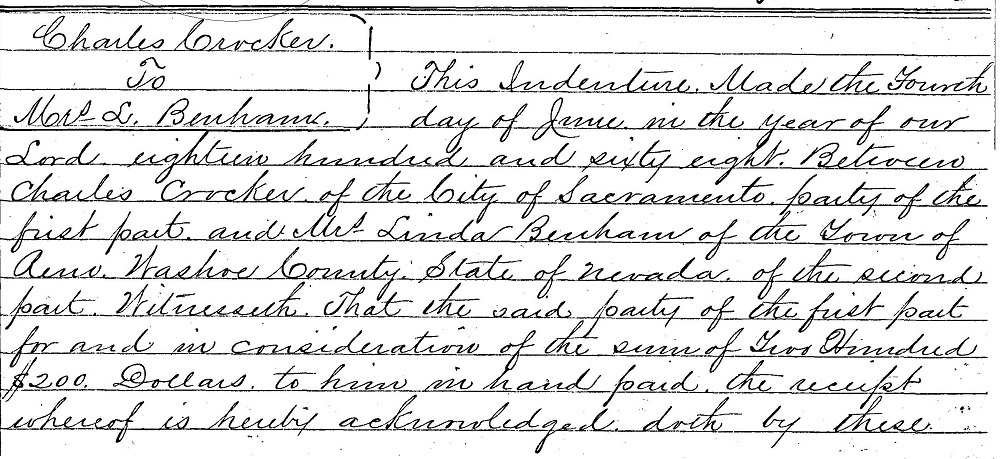 Charles Crocker.
To
Mrs. L. Benham.
This Indenture. Made the Fourth
day of June. in the year of our
Lord. eighteen hundred and sixty eight. Between
Charles Crocker. of the City of Sacramento. party of the
first part. and Mrs. Linda Benham of the Town of
Reno. Washoe County. State of Nevada. of the second
part. Witnesseth. That the said party of the first part
for and in consideration of the sum of Two Hundred
$200. Dollars. to him in hand paid. the receipt
whereof is hereby acknowledged. doth by these